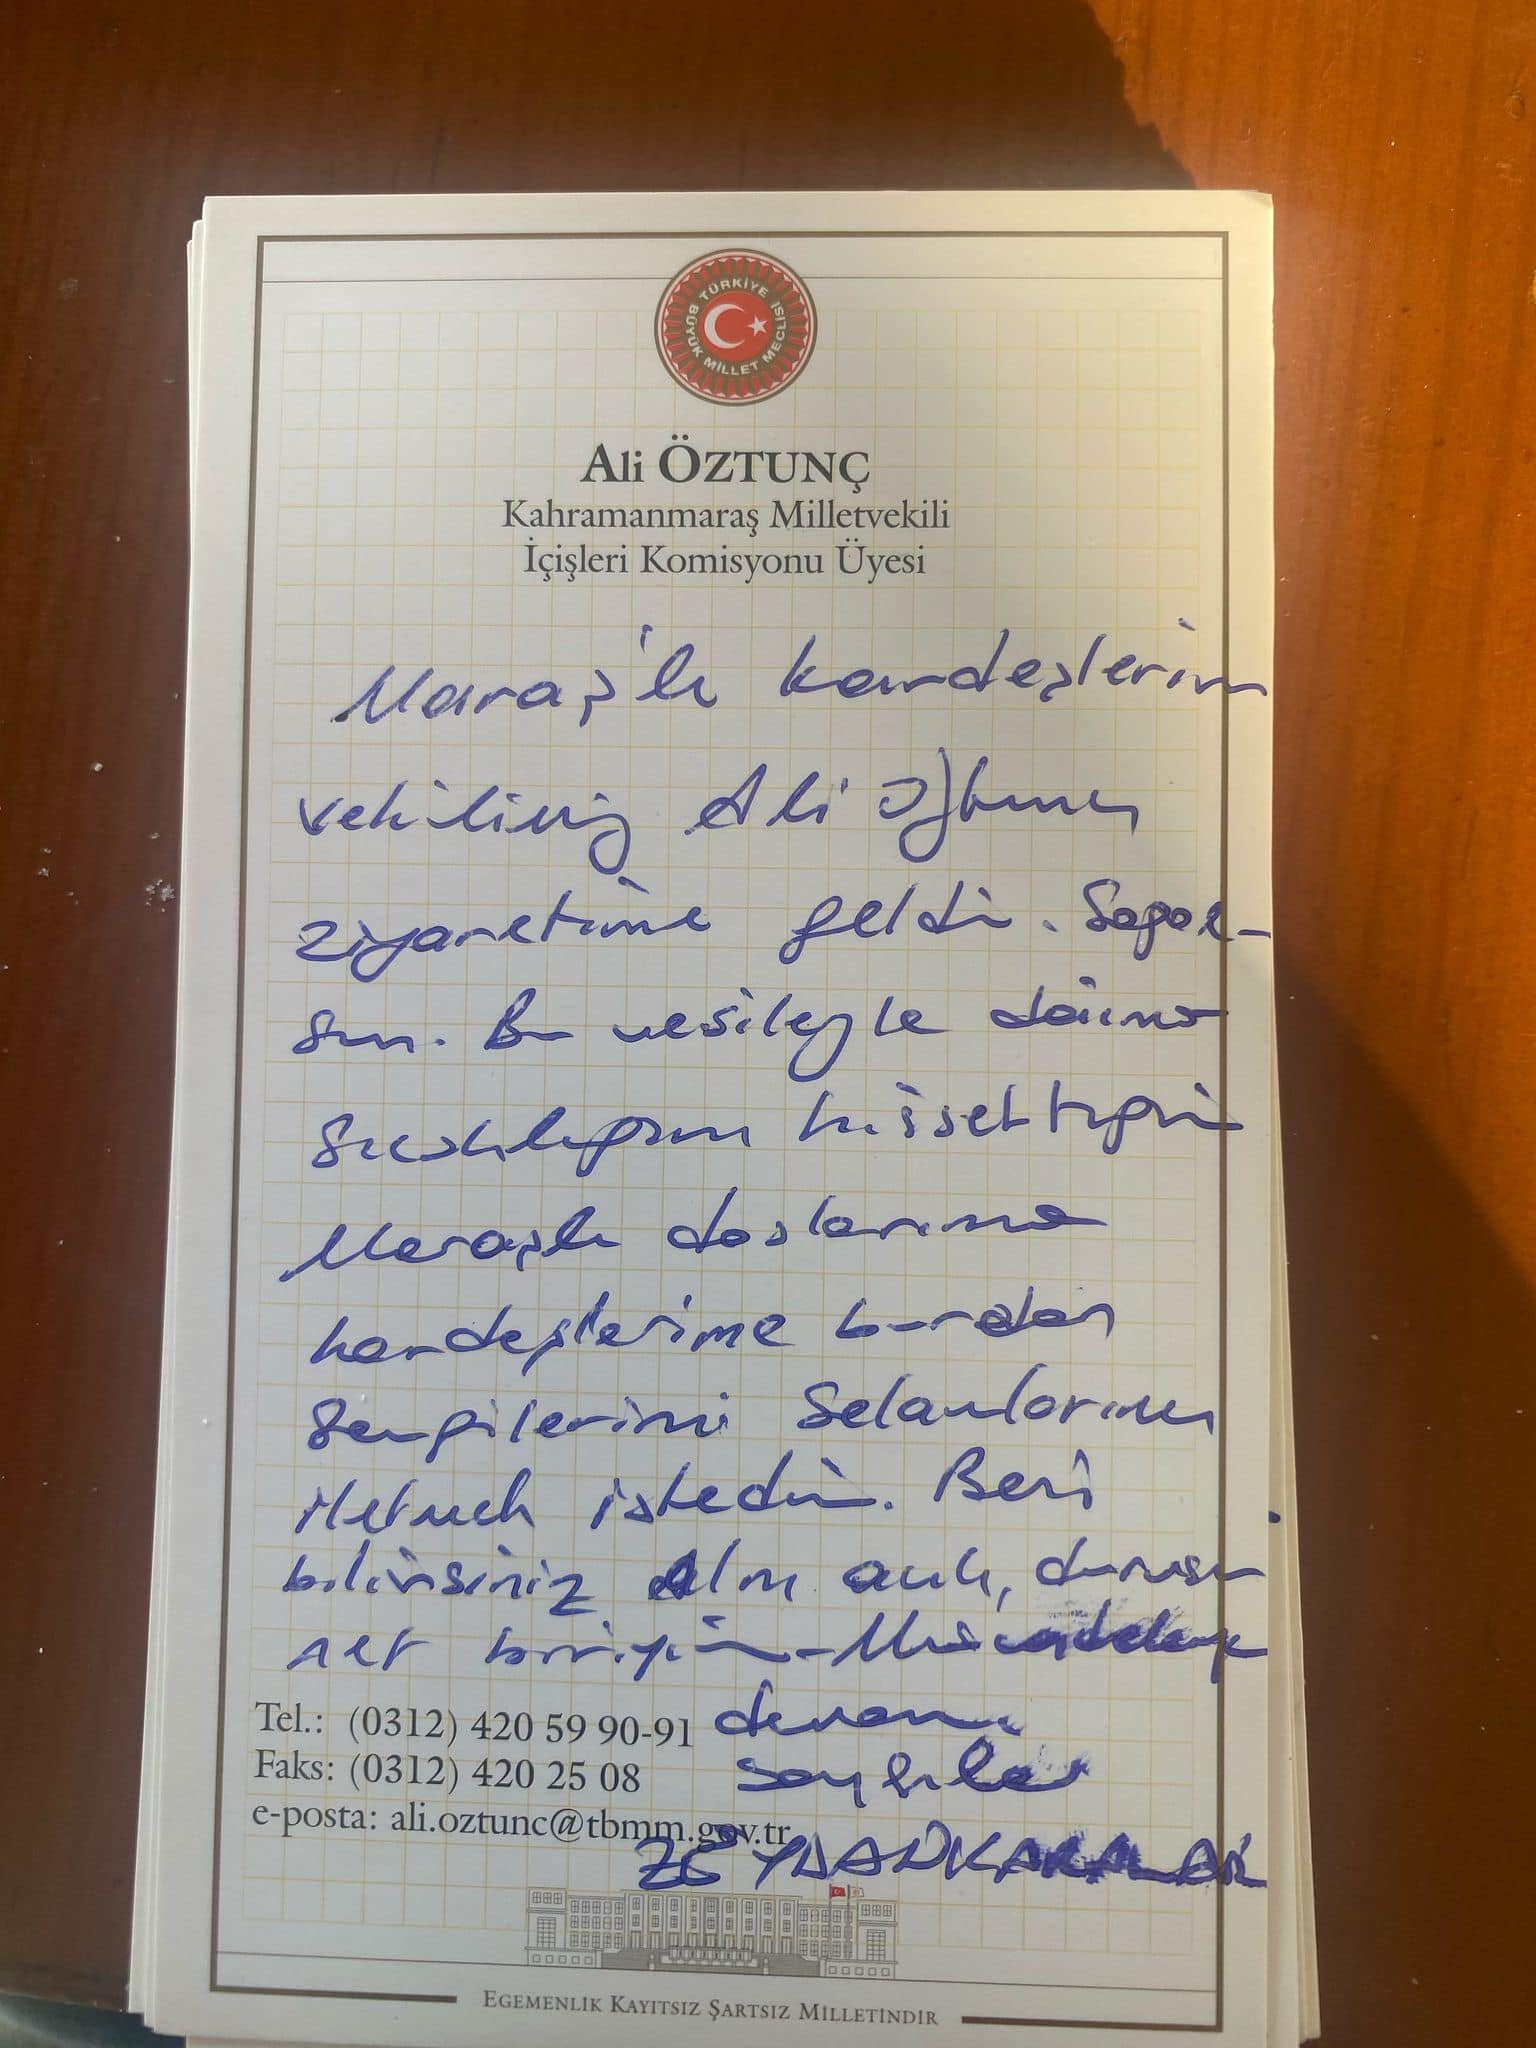 TÜRKİYE BÜYÜK MİLLET MECLİSİ
Ali ÖZTUNÇ
Kahramanmaraş Milletvekili
İçişleri Komisyonu Üyesi
Maraş'lı kardeşlerim
vekiliniz Ali Öztunç
ziyaretime geldi. Sağol-
sun. Bu vesileyle daima
sıcaklığını hissettiğim
Maraşlı dostlarıma
kardeşlerime burdan
sevgilerimi selamlarımı
iletmek istedim. Beni
bilirsiniz alnı açık, dürüst
net biriyim. Mücadeleye
Tel.: (0312) 420 59 90-91 devam
Faks: (0312) 420 25 08 saygılar
e-posta: ali.oztunc@tbmm.gov.tr
ZEYDAN KARALAR
EGEMENLİK KAYITSIZ ŞARTSIZ MİLLETİNDİR